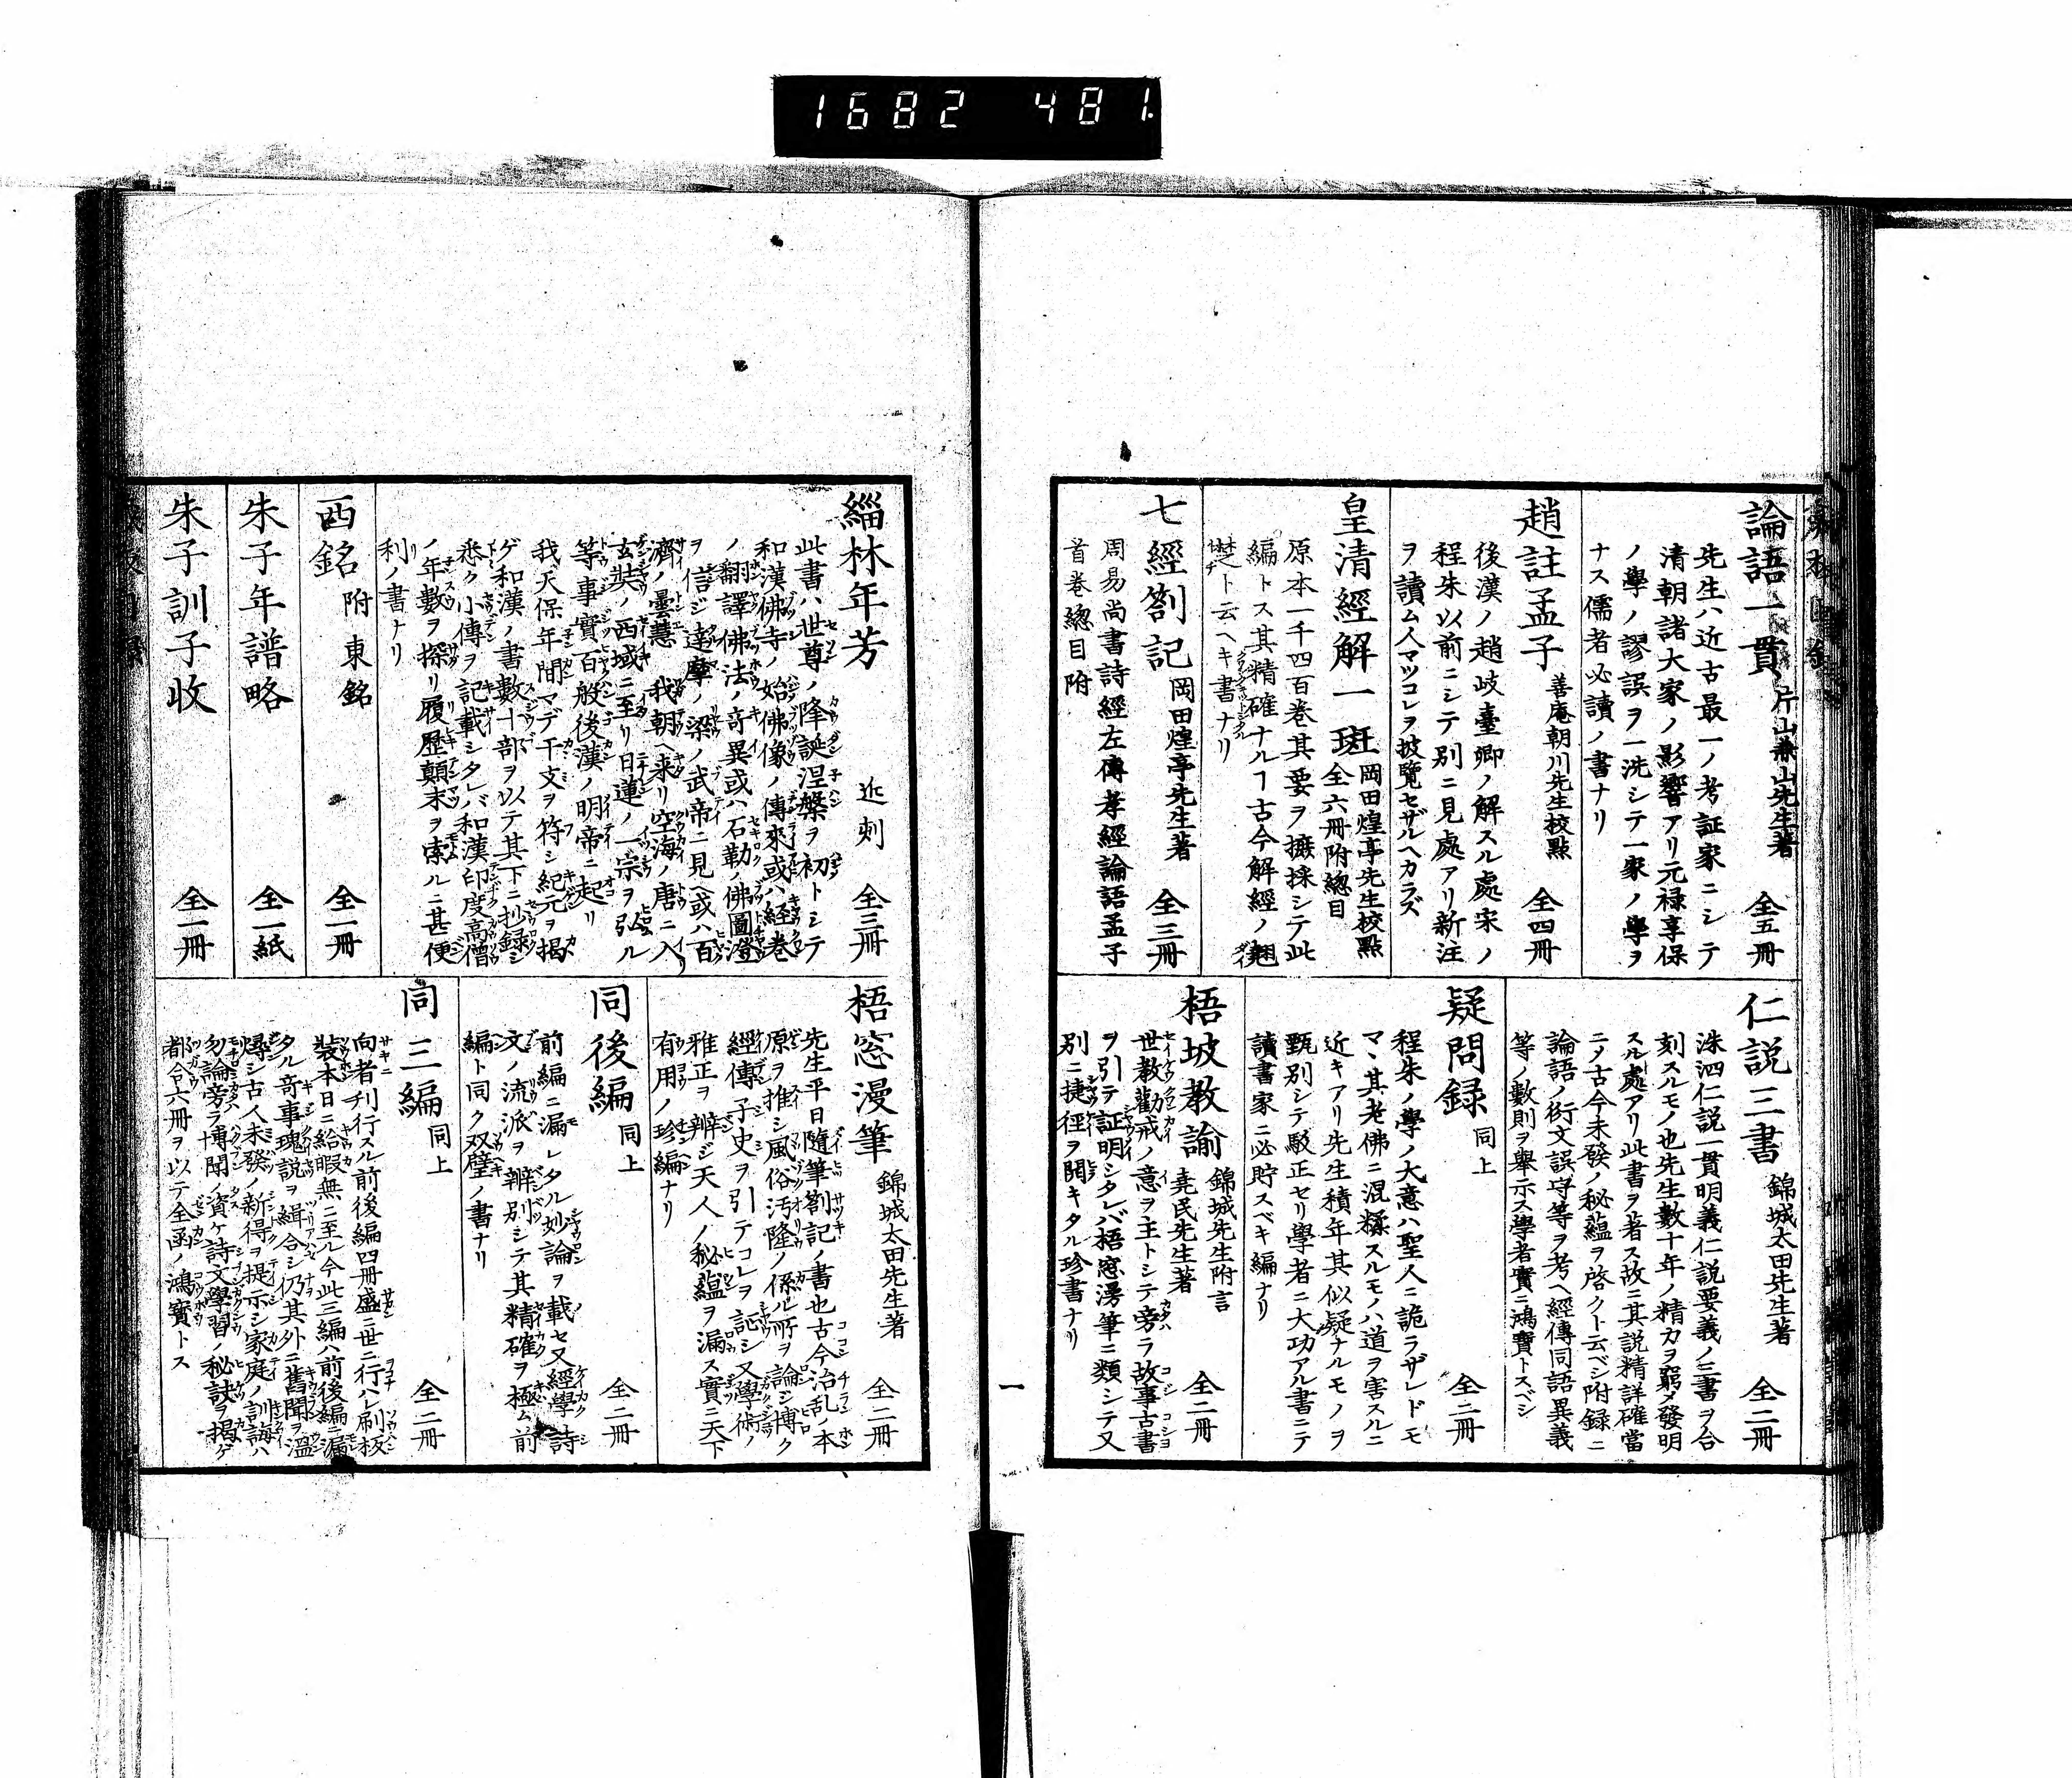 1682 481
論語一貫 片山兼山先生著 全五冊
先生ハ近古最一ノ考証家ニシテ
清朝諸大家ノ影響アリ元禄享保
ノ學ノ謬誤ヲ一洗シテ一家ノ學ヲ
ナス儒者必讀ノ書ナリ
趙註孟子 善庵朝川先生校點 全四冊
後漢ノ趙岐臺卿ノ解スル處宋ノ
程朱以前ニシテ別ニ見處アリ新注
ヲ讀ム人マツコレヲ披覽セザルヘカラズ
皇清經解一斑 岡田煌亭先生校點 全六冊附總目
原本一千四百巻其要ヲ摭採シテ此
編トス其精確ナルヿ古今解經ノ翹
楚ト云ヘキ書ナリ
七經劄記 岡田煌亭先生著 全三冊
周易尚書詩經左傳孝經論語孟子
首巻總目附
仁説三書 錦城太田先生著 全二冊
洙泗仁説一貫明義仁説要義ノ三書ヲ合
刻スルモノ也先生數十年ノ精力ヲ窮メ發明
スル處アリ此書ヲ著ス故ニ其説精詳確當
ニノ古今未發ノ秘蘊ヲ啓クト云ベシ附録ニ
論語ノ衍文誤字等ヲ考ヘ經傳同語異義
等ノ數則ヲ舉示ス學者實ニ鴻寶トスベシ
疑問録 同上 全二冊
程朱ノ學ノ大意ハ聖人ニ詭ラザレドモ
マヽ其老佛ニ混糅スルモノハ道ヲ害スルニ
近キアリ先生積年其似疑ナルモノヲ
甄別シテ駁正セリ學者ニ大功アル書ニテ
讀書家ニ必貯スベキ編ナリ
梧坡教諭 錦城先生附言 堯民先生著 全二冊
世教勸戒ノ意ヲ主トシテ旁ラ故事古書
ヲ引テ証明シタレバ梧窓漫筆ニ類シテ又
別ニ捷径ヲ開キタル珍書ナリ
一
緇林年芳 近刻 全三冊
此書ハ世尊ノ降誕涅槃ヲ初トシテ
和漢佛寺ノ始佛像ノ傳來或ハ経巻
ノ翻譯佛法ノ竒異或ハ石勒ノ佛圖澄
ヲ信ジ達摩ノ梁ノ武帝ニ見ヘ或ハ百
濟ノ曇慧我朝ヘ来リ空海ノ唐ニ入
玄奘ノ西域ニ至リ日蓮ノ一宗ヲ弘ル
等事實百般後漢ノ明帝ニ起リ
我天保年間マデ干支ヲ符シ紀元ヲ掲
ゲ和漢ノ書數十部ヲ以テ其下ニ抄録シ
悉ク小傳ヲ記載シタレバ和漢印度高僧
ノ年數ヲ探リ履歴顛末ヲ索ルニ甚便
利ノ書ナリ
西銘 附東銘 全一冊
朱子年譜略 全一紙
朱子訓子收 全一冊
梧窓漫筆 錦城太田先生著 全二冊
先生平日隨筆劄記ノ書也古今治乱ノ本
原ヲ推シ風俗汚隆ノ係ル所ヲ論シ博ク
經傳子史ヲ引テコレヲ証シ又學術ノ
雅正ヲ辨ジ天人ノ秘蘊ヲ漏ス實ニ天下
有用ノ珍編ナリ
同後編 同上 全二冊
前編ニ漏レタル妙論ヲ載セ又經學詩
文ノ流派ヲ辨別シテ其精確ヲ極ム前
編ト同ク双璧ノ書ナリ
同三編 同上 全二冊
向者刊行スル前後編四冊盛ニ世ニ行ハレ刷板
裝本日ニ給暇無ニ至ル今此三編ハ前後編ニ漏
タル竒事瑰説ヲ緝合シ仍其外ニ舊聞ヲ温
尋シ古人未發ノ新得ヲ提示シ家庭ノ訓誨ハ
勿論旁ヲ博聞ノ資ケ詩文學習ノ秘訣ヲ掲ゲ
都合六冊ヲ以テ全函ノ鴻寶トス